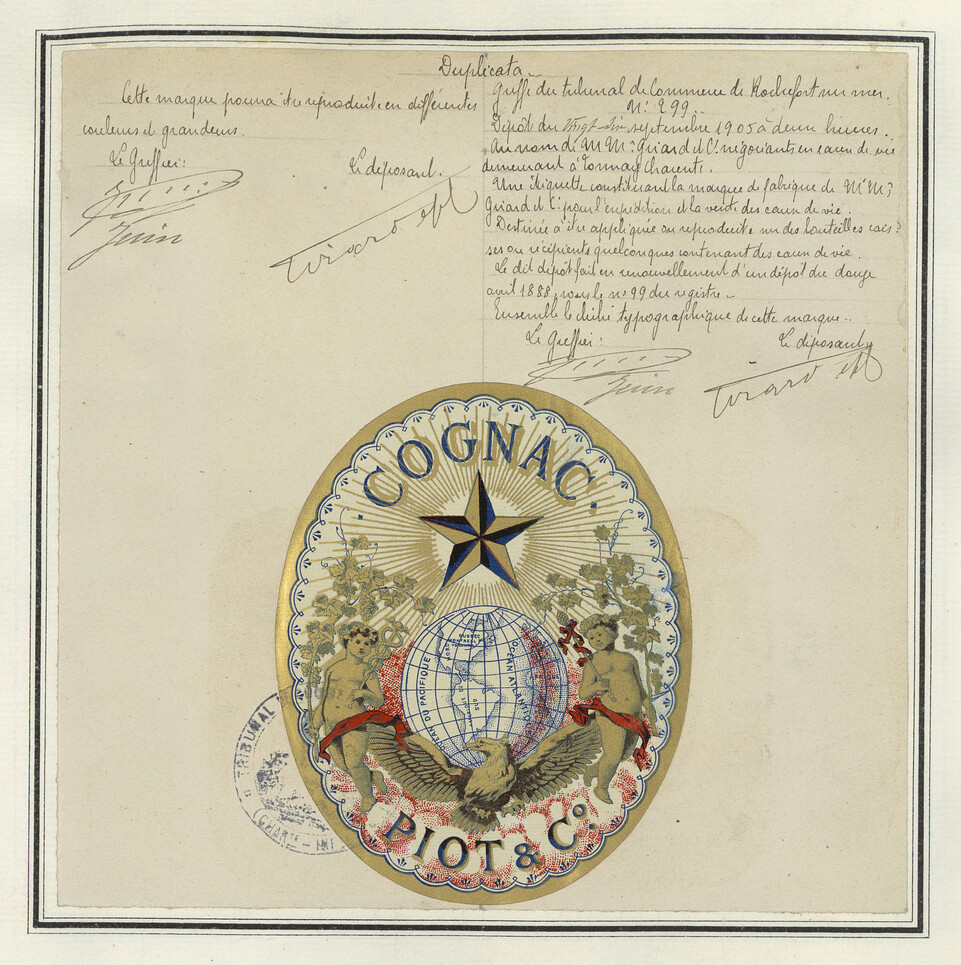 Duplicata
Cette marque pourra être reproduite en différentes
couleurs et grandeurs.
Le Greffier:
Le déposant.
Greffe du tribunal de Commerce de Rochefort sur mer.
N: 299.
Dépôt du vingt-six septembre 1905 à deux heures.
Au nom de MM: Girard et Cie négociants en eaux de vie
demeurant à Tonnay Charente.
Une étiquette constituant la marque de fabrique de MM:
Girard et Cie pour l'expédition et la vente des eaux de vie.
Destinée à être appliquée ou reproduite sur des bouteilles cais-
ses ou récipients quelconques contenant des eaux de vie.
Le dit dépôt fait en renouvellement d'un dépôt du douze
avril 1888, sous le n: 99 du registre.
Ensemble le cliché typographique de cette marque.
Le Greffier:
Le déposant,
·COGNAC·
QUEBEC
MONTREAL
OCEAN DU PACIFIQUE
OCEAN ATLANTIQUE
PIOT & Co.
TRIBUNAL
(CHARTE-INF